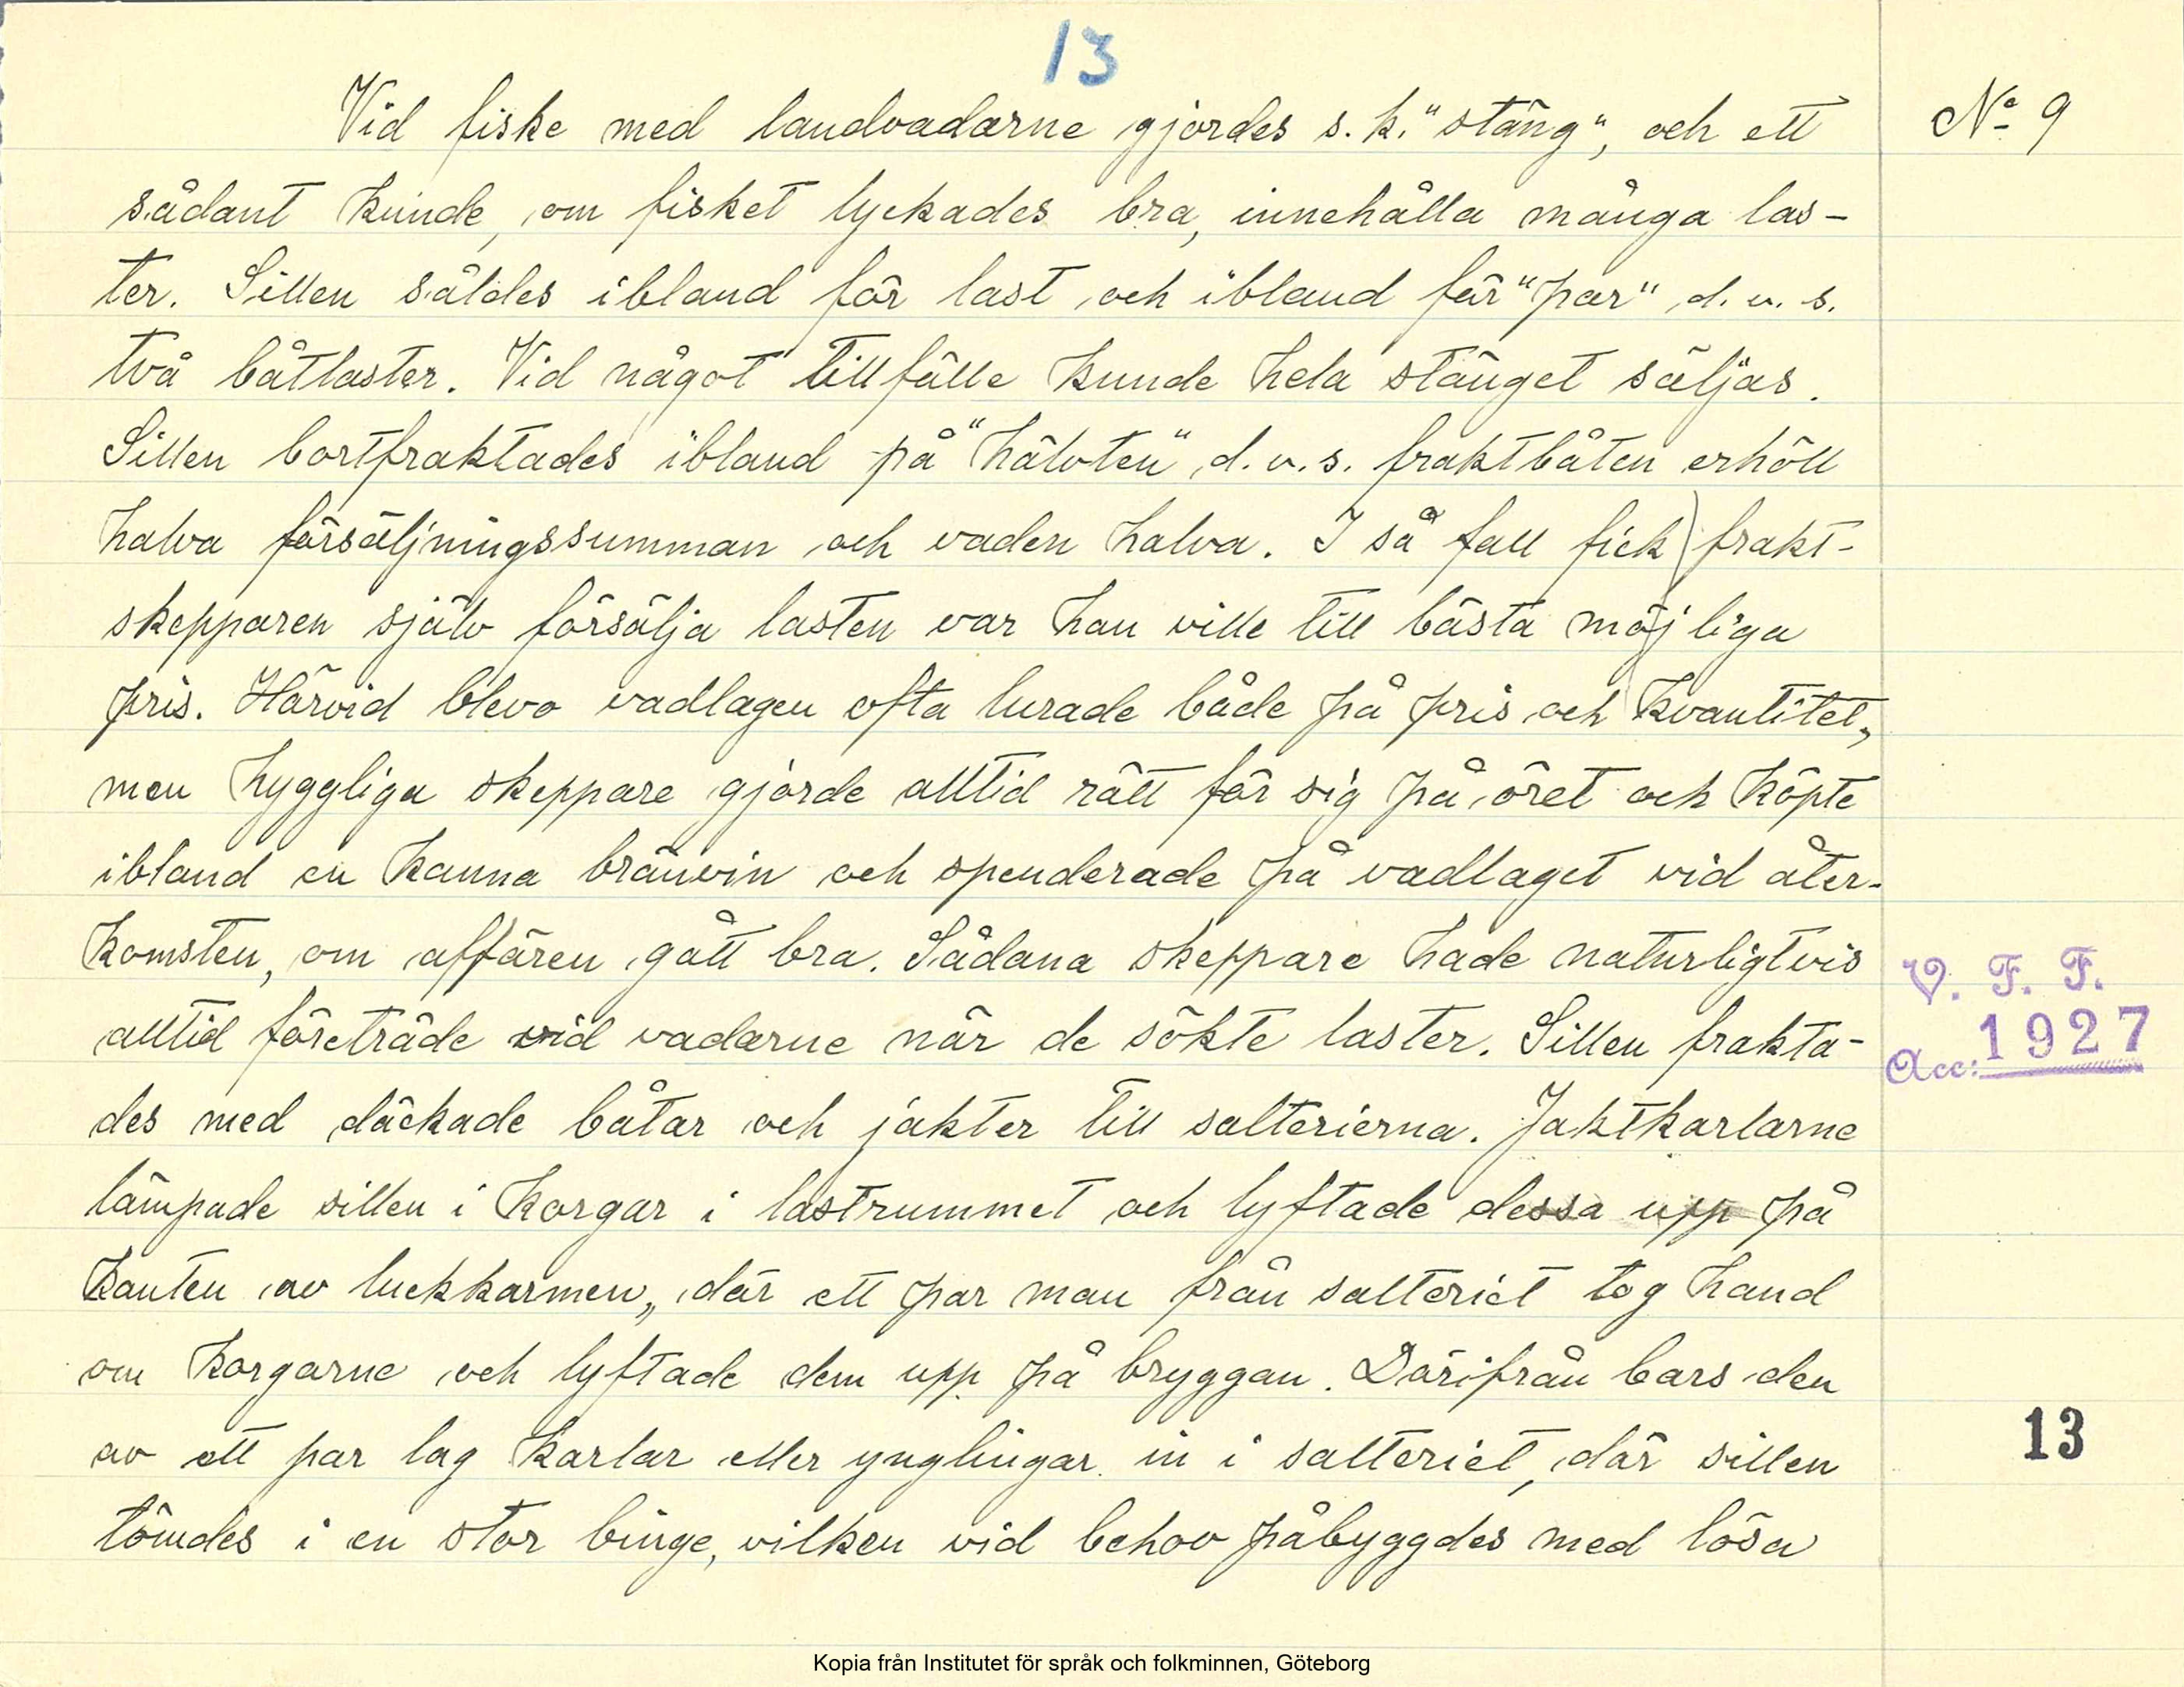 13
Vid fiske med landvadarne gjordes s.k. "stäng", och ett
N:o 9
sådant kunde, om fisket lyckades bra, innehålla många las-
ter. Sillen såldes ibland för last och ibland för "par" d.v.s.
två båtlaster. Vid något tillfälle kunde hela stänget säljas.
Sillen bortfraktades ibland på "hälvten", d.v.s. fraktbåten erhöll
halva försäljningssumman och vaden halva. I så fall fick frakt-
skepparen själv försälja lasten var han ville till bästa möjliga
pris. Härvid blevo vadlagen ofta lurade både på pris och kvantitet,
men hyggliga skeppare gjorde alltid rätt för sig på öret och köpte
ibland en kanna bränvin och spenderade på vadlaget vid åter-
komsten, om affären gått bra. Sådana skeppare hade naturligtvis
alltid företräde vid vadarne när de sökte laster. Sillen frakta-
V. F. F.
Acc: 1927
des med däckade båtar och jakter till salterierna. Jaktkarlarne
lämpade sillen i korgar i lastrummet och lyftade dessa upp på
kanten av luckkarmen, där ett par man från salteriet tog hand
om korgarne och lyftade dem upp på bryggan. Därifrån bars den
av ett par lag karlar eller ynglingar in i salteriet, där sillen
13
tömdes i en stor binge, vilken vid behov påbyggdes med lösa
Kopia från Institutet för språk och folkminnen, Göteborg